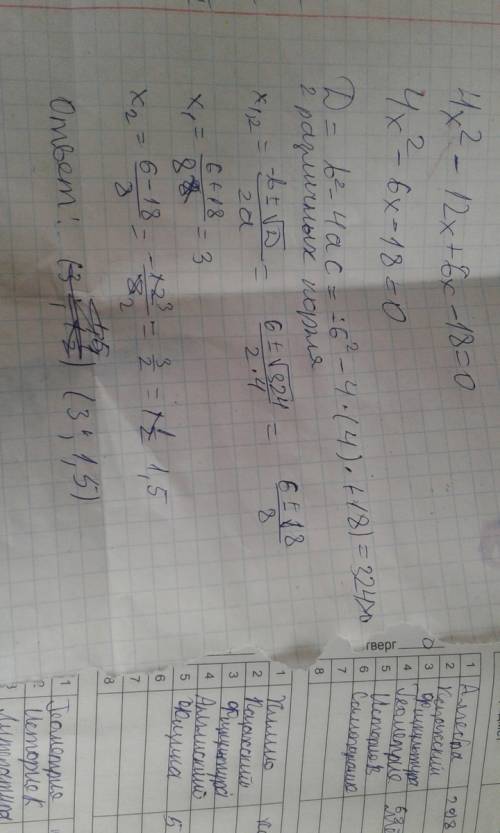 4x² - 12x + 6x - 18 = 0
4x² - 6x - 18 = 0
D = b² - 4ac = -6² - 4·(4)·(+18) = 324>0
2 различных корня
x₁,₂ = (-b ± √D)/2a = (6 ± √324)/(2·4) = (6 ± 18)/8
x₁ = (6+18)/8 = 3
x₂ = (6-18)/8 = -12³/8₂ = 3/2 = 1½ 1,5
Ответ: (3; 1,5)
тверг
1 Алгебра
2 Казахский
3 Физкультура
4 Геометрия
5 История В
6 Самопознание
7
8
1
2 Казахский
3 Физкультура
4
5 Физика
6
7
8
1 Геометрия
2 История К
3 Литература